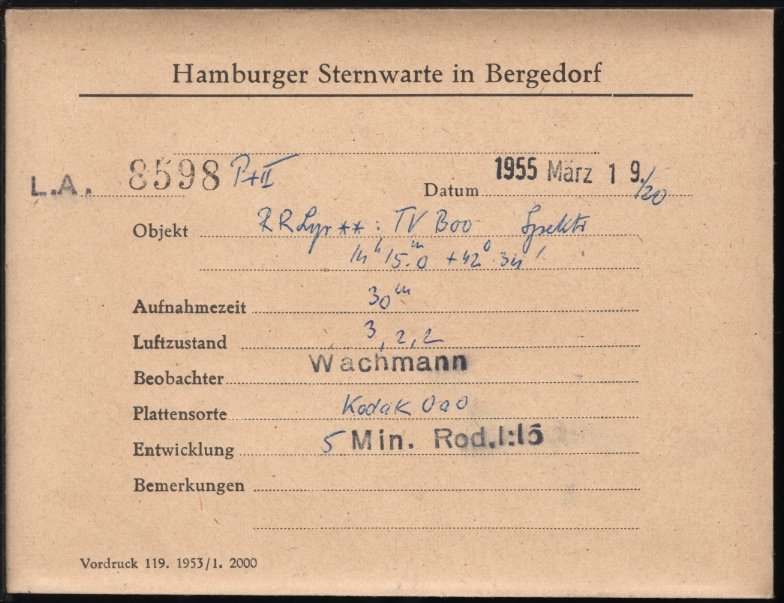 Hamburger Sternwarte in Bergedorf
L.A. 8598 P+II
Datum 1955 März 19./20
Objekt RR Lyr ** : TV Boo Spektr
14h 15.m0 +42° 34'
Aufnahmezeit 30m
Luftzustand 3, 2, 2
Beobachter Wachmann
Plattensorte Kodak OaO
Entwicklung 5 Min. Rod.1:15
Bemerkungen
Vordruck 119. 1953/1. 2000